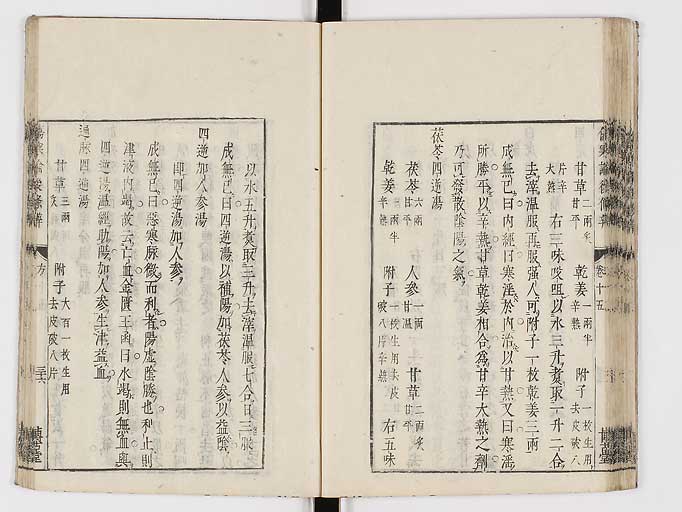 甘草 二兩半 甘平 乾姜 一兩半 辛熱 附子 一枚生用 去皮破八
片辛 大熱 右三味㕮咀以水三升煑取一升二合
去滓溫服再服强人可附子一枚乾姜三兩
成無已曰内經曰寒淫於内治以甘熱又曰寒淫
所勝平以辛熱甘草乾姜相合爲甘辛大熱之劑
乃可發散陰陽之氣
茯苓四逆湯
茯苓 六兩 甘平 人參 一兩 甘溫 甘草 二兩炙 甘平
乾姜 一兩半 辛熱 附子 一枚生用去皮 破八片辛熱 右五味
卷十五
以水五升煑取三升去滓溫服七合日三服
成無已曰四逆湯以補陽加茯苓人參以益陰
四逆加人參湯
即四逆湯加人參
成無已曰惡寒脉微而利者陽虛陰勝也利止則
津液内竭故去亡血金匱玉函曰水竭則無血與
四逆湯溫經助陽加人參生津益血
通脉四逆湯
甘草 三兩 炙 附子 大者一枚生用 去皮破八片
方